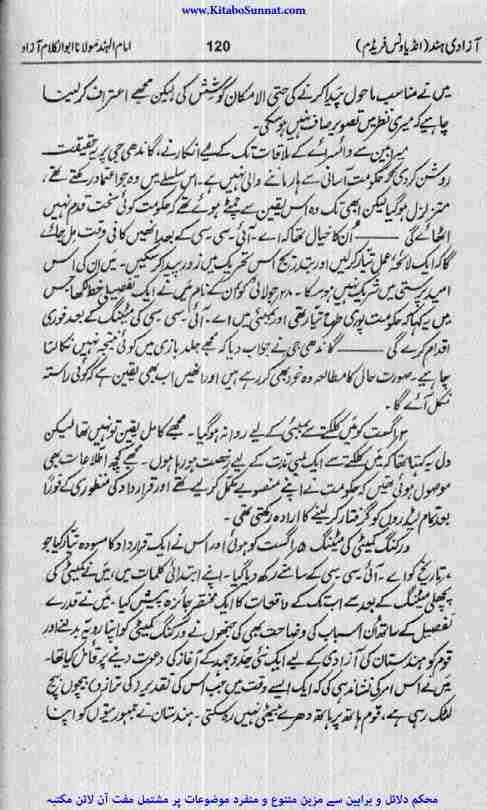 www.KitaboSunnat.com
آزادی ہند (انڈیا ونس فریڈم) 120 امام الہند مولانا ابوالکلام آزاد
میں نے مناسب ماحول پیدا کرنے کی حتی الامکان کوشش کی لیکن مجھے اعتراف کرلینا
چاہیے کہ میری نظر میں تصویر صاف نہیں ہوسکی۔
میرا بین سے وائسرائے کے ملاقات تک کے لیے انکار نے، گاندھی جی پر یہ حقیقت
روشن کردی کہ حکومت آسانی سے ہار ماننے والی نہیں ہے۔ اس سلسلے میں وہ جو اعتماد رکھتے تھے،
متزلزل ہوگیا لیکن ابھی تک وہ اس یقین سے چمٹے ہوئے تھے کہ حکومت کوئی سخت قدم نہیں
اٹھائے گی ـــــــ اُن کا خیال تھا کہ اے۔ آئی۔ سی۔ سی کے بعد انھیں کافی وقت مل جائے
گا کہ ایک لائحۂ عمل تیار کرلیں اور بتدریج اس تحریک میں زور پیدا کرسکیں۔ میں ان کی اس
امید پرستی میں شریک نہیں ہوسکا۔ ۲۸ جولائی کو ان کے نام میں نے ایک تفصیلی خط لکھا جس
میں یہ کہا کہ حکومت پوری طرح تیار تھی اور بمبئی میں اے۔ آئی۔ سی۔ سی کی میٹنگ کے بعد فوری
اقدام کرے گی ـــــــ گاندھی جی نے جواب دیا کہ مجھے جلد بازی میں کوئی نتیجہ نہیں نکالنا
چاہیے۔ صورت حال کا مطالعہ وہ خود بھی کر رہے ہیں اور انھیں اب بھی یقین ہے کہ کوئی راستہ
نکل آئے گا۔
۳ اگست کو میں کلکتے سے بمبئی کے لیے روانہ ہوگیا۔ مجھے کامل یقین تو نہیں تھا لیکن
دل یہ کہتا تھا کہ میں کلکتے سے ایک لمبی مدت کے لیے رخصت ہو رہا ہوں۔ مجھے کچھ اطلاعات بھی
موصول ہوئی تھیں کہ حکومت نے اپنے منصوبے مکمل کرلیے تھے اور قرارداد کی منظوری کے فوراً
بعد تمام لیڈروں کو گرفتار کرلینے کا ارادہ رکھتی تھی۔
ورکنگ کمیٹی کی میٹنگ ۵ اگست کو ہوئی اور اس نے ایک قرارداد کا مسودہ تیار کیا جو
تاریخ کو اے۔ آئی۔ سی۔ سی کے سامنے رکھ دیا گیا۔ اپنے ابتدائی کلمات میں، میں نے کمیٹی کی
پچھلی میٹنگ کے بعد سے اب تک کے واقعات کا ایک مختصر جائزہ پیش کیا۔ میں نے قدرے
تفصیل کے ساتھ اُن اسباب کی وضاحت بھی کی جنھوں نے ورکنگ کمیٹی کو اپنا رویہ بدلنے اور
قوم کو ہندستان کی آزادی کے لیے ایک نئی جدوجہد کے آغاز کی دعوت دینے پر قائل کیا تھا۔
میں نے اس امر کی نشاندہی کی کہ ایک ایسے وقت میں جب اس کی تقدیر (کی ترازو) بیچوں بیچ
لٹک رہی ہے، قوم ہاتھ پر ہاتھ دھرے بیٹھی نہیں رہ سکتی۔ ہندستان نے جمہوریتوں کو اپنا
محکم دلائل و براہین سے مزین متنوع و منفرد موضوعات پر مشتمل مفت آن لائن مکتبہ